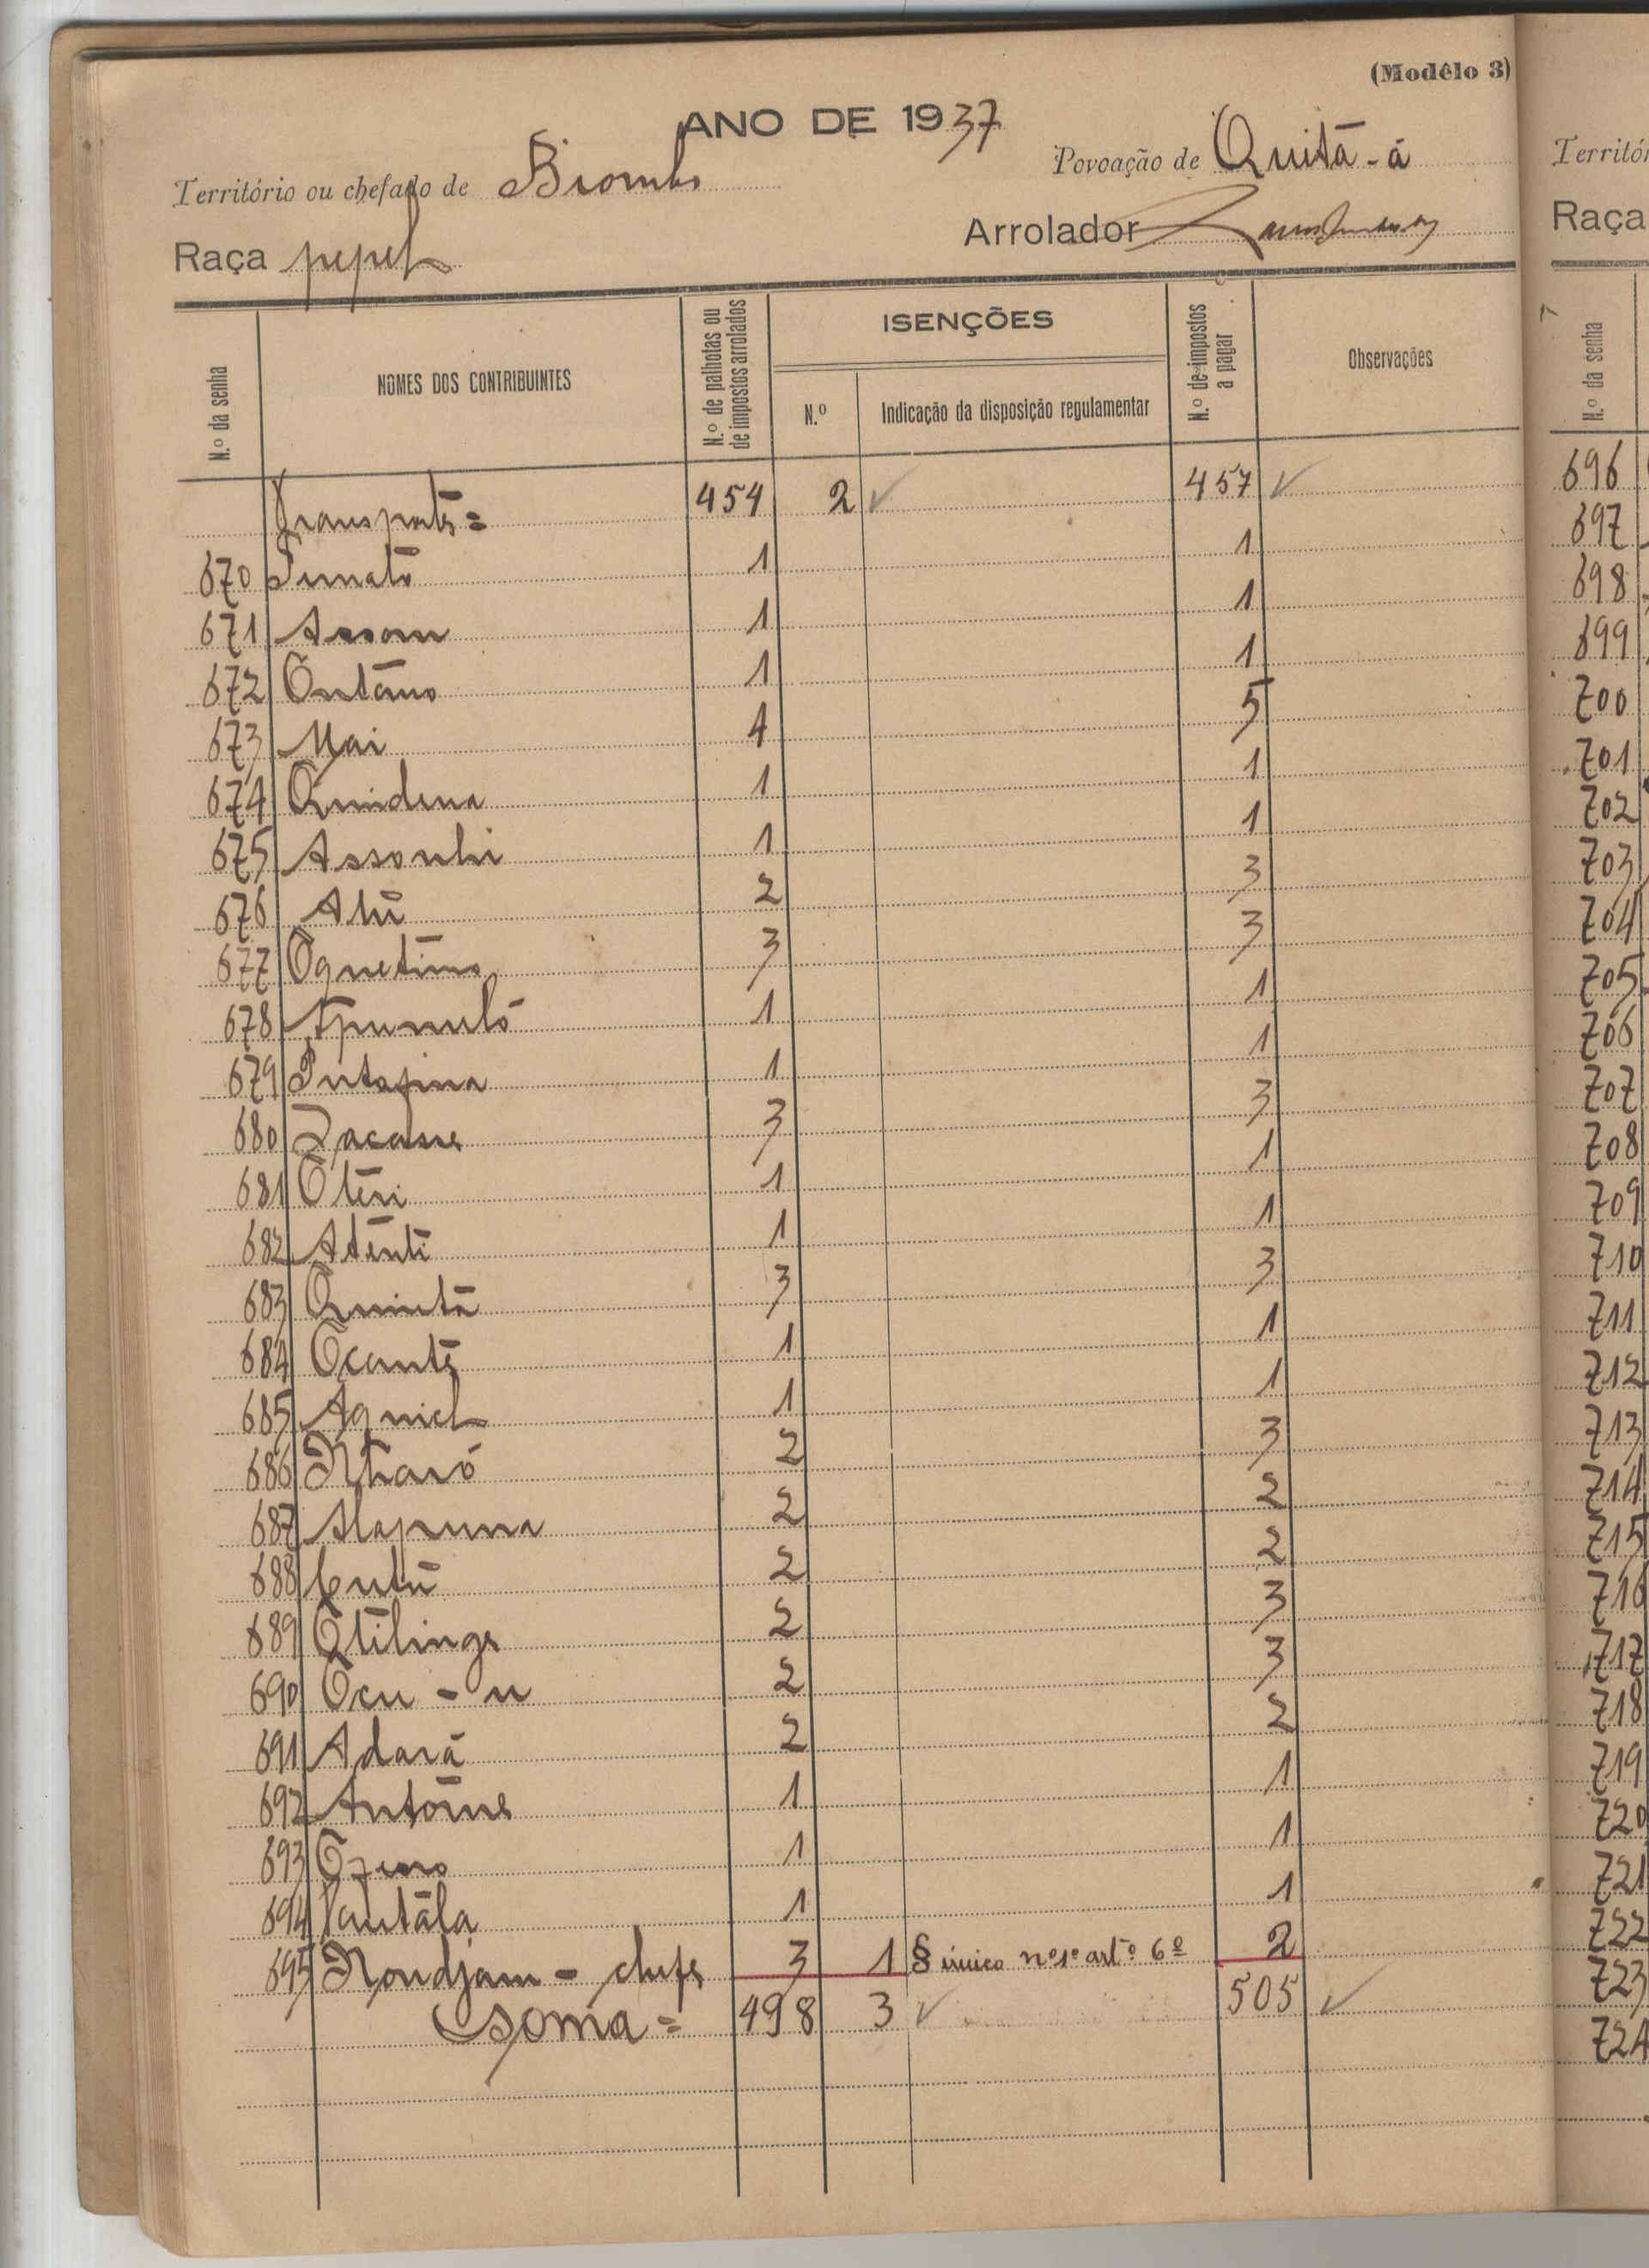 (Modêlo 3)
ANO DE 1937
Território ou chefado de Biombo
Povoação de Quitā-á
Raça pepel
Arrolador
N.º da senha
NOMES DOS CONTRIBUINTES
N.º de palhotas ou de impostos arrolados
ISENÇÕES
N.º
Indicação da disposição regulamentar
N.º de impostos a pagar
Observações
Transporte = 454 2 ✓ 457 ✓
670 1 1
671 Assom 1 1
672 Ontāno 1 1
673 Mai 4 5
674 Quidena 1 1
675 Assonhi 1 1
676 2 3
677 Oquetimo 3 3
678 Apumuló 1 1
679 1 1
680 Zacasse 3 3
681 Otēri 1 1
682 Atēnti 1 1
683 Quintā 3 3
684 Ocante 1 1
685 Aquiel 1 1
686 2 3
687 Alapuma 2 2
688 Cutū 2 2
689 Otilinge 2 3
690 Ocu - u 2 3
691 Adará 2 2
692 Antóme 1 1
693 1 1
694 Vautāla 1 1
695 Nondjam - chefe 3 1 § único nº 1º artº 6º 2
Soma = 498 3 ✓ 505 ✓
Territó
Raça
N.º da senha
696
697
698
699
700
701
702
703
704
705
706
707
708
709
710
711
712
713
714
715
716
717
718
719
720
721
722
723
724